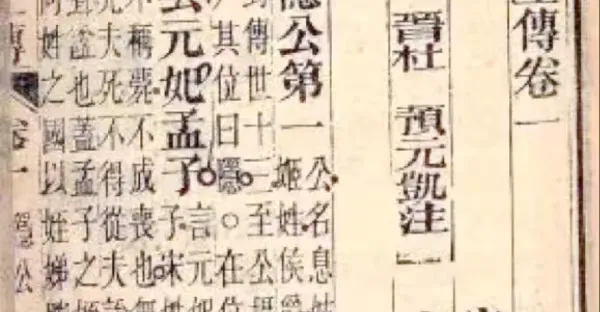 傳卷一
晉杜 預元凱注
公第一 公名息
姬姓侯
傳世十三至公
其位曰隱○在位
元妃孟子 言元妃
子宋
稱薨不成喪也無
夫死不得從夫
諡也蓋孟子之
姓之國以姪娣
傳 卷一 隱公